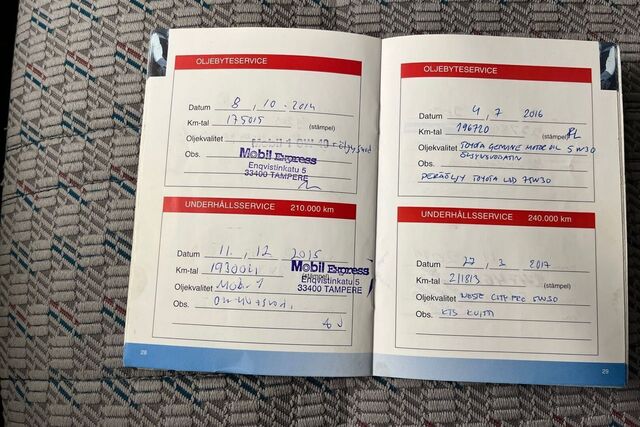 OLJEBYTESERVICE
Datum 8, 10. 2014
Km-tal 175015 (stämpel)
Oljekvalitet
Obs.
Mobil Express
Enqvistinkatu 5
33400 TAMPERE
UNDERHÅLLSSERVICE 210.000 km
Datum 11. 12. 2015
Km-tal (stämpel)
Oljekvalitet Mobil 1
Obs.
Mobil Express
Enqvistinkatu 5
33400 TAMPERE
28
OLJEBYTESERVICE
Datum 4, 7 2016
Km-tal 196720 (stämpel)
Oljekvalitet TOYOTA GENUINE MOTOR OIL 5W30
Obs. ÖLJYNSUODATIN
PERÄÖLJY TOYOTA LSD 75W30
UNDERHÅLLSSERVICE 240.000 km
Datum 27, 3 2017
Km-tal 211813 (stämpel)
Oljekvalitet NESTE CITY PRO 5W30
Obs. KTS KUITTI
29